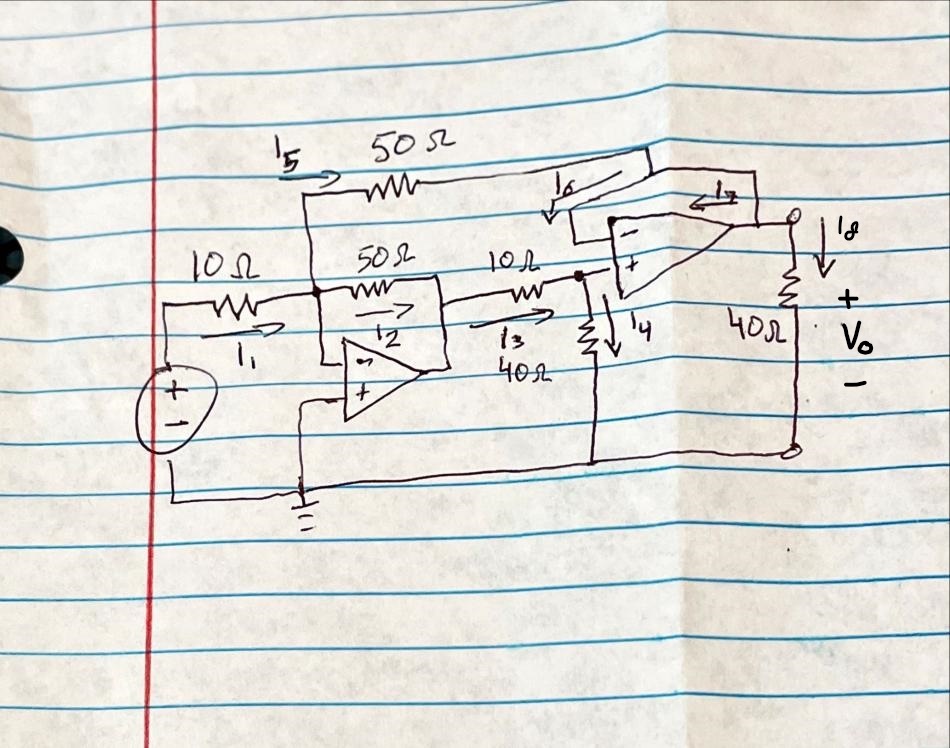 I5 50 Ω
I6 I7
10 Ω 50 Ω 10 Ω - I8
+
I1 I2 I3 I4 40 Ω +
40 Ω Vo
+ - -
- +